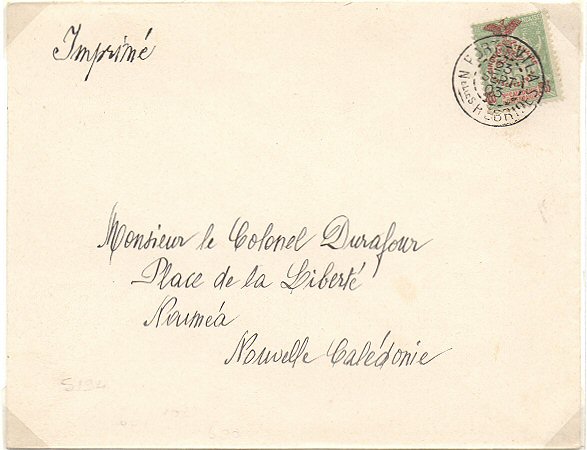 Imprimé
PORT-VILA
23
SEPT
03
Nlles HEBRIDES
Monsieur le Colonel Durafour
Place de la Liberté
Nouméa
Nouvelle Calédonie